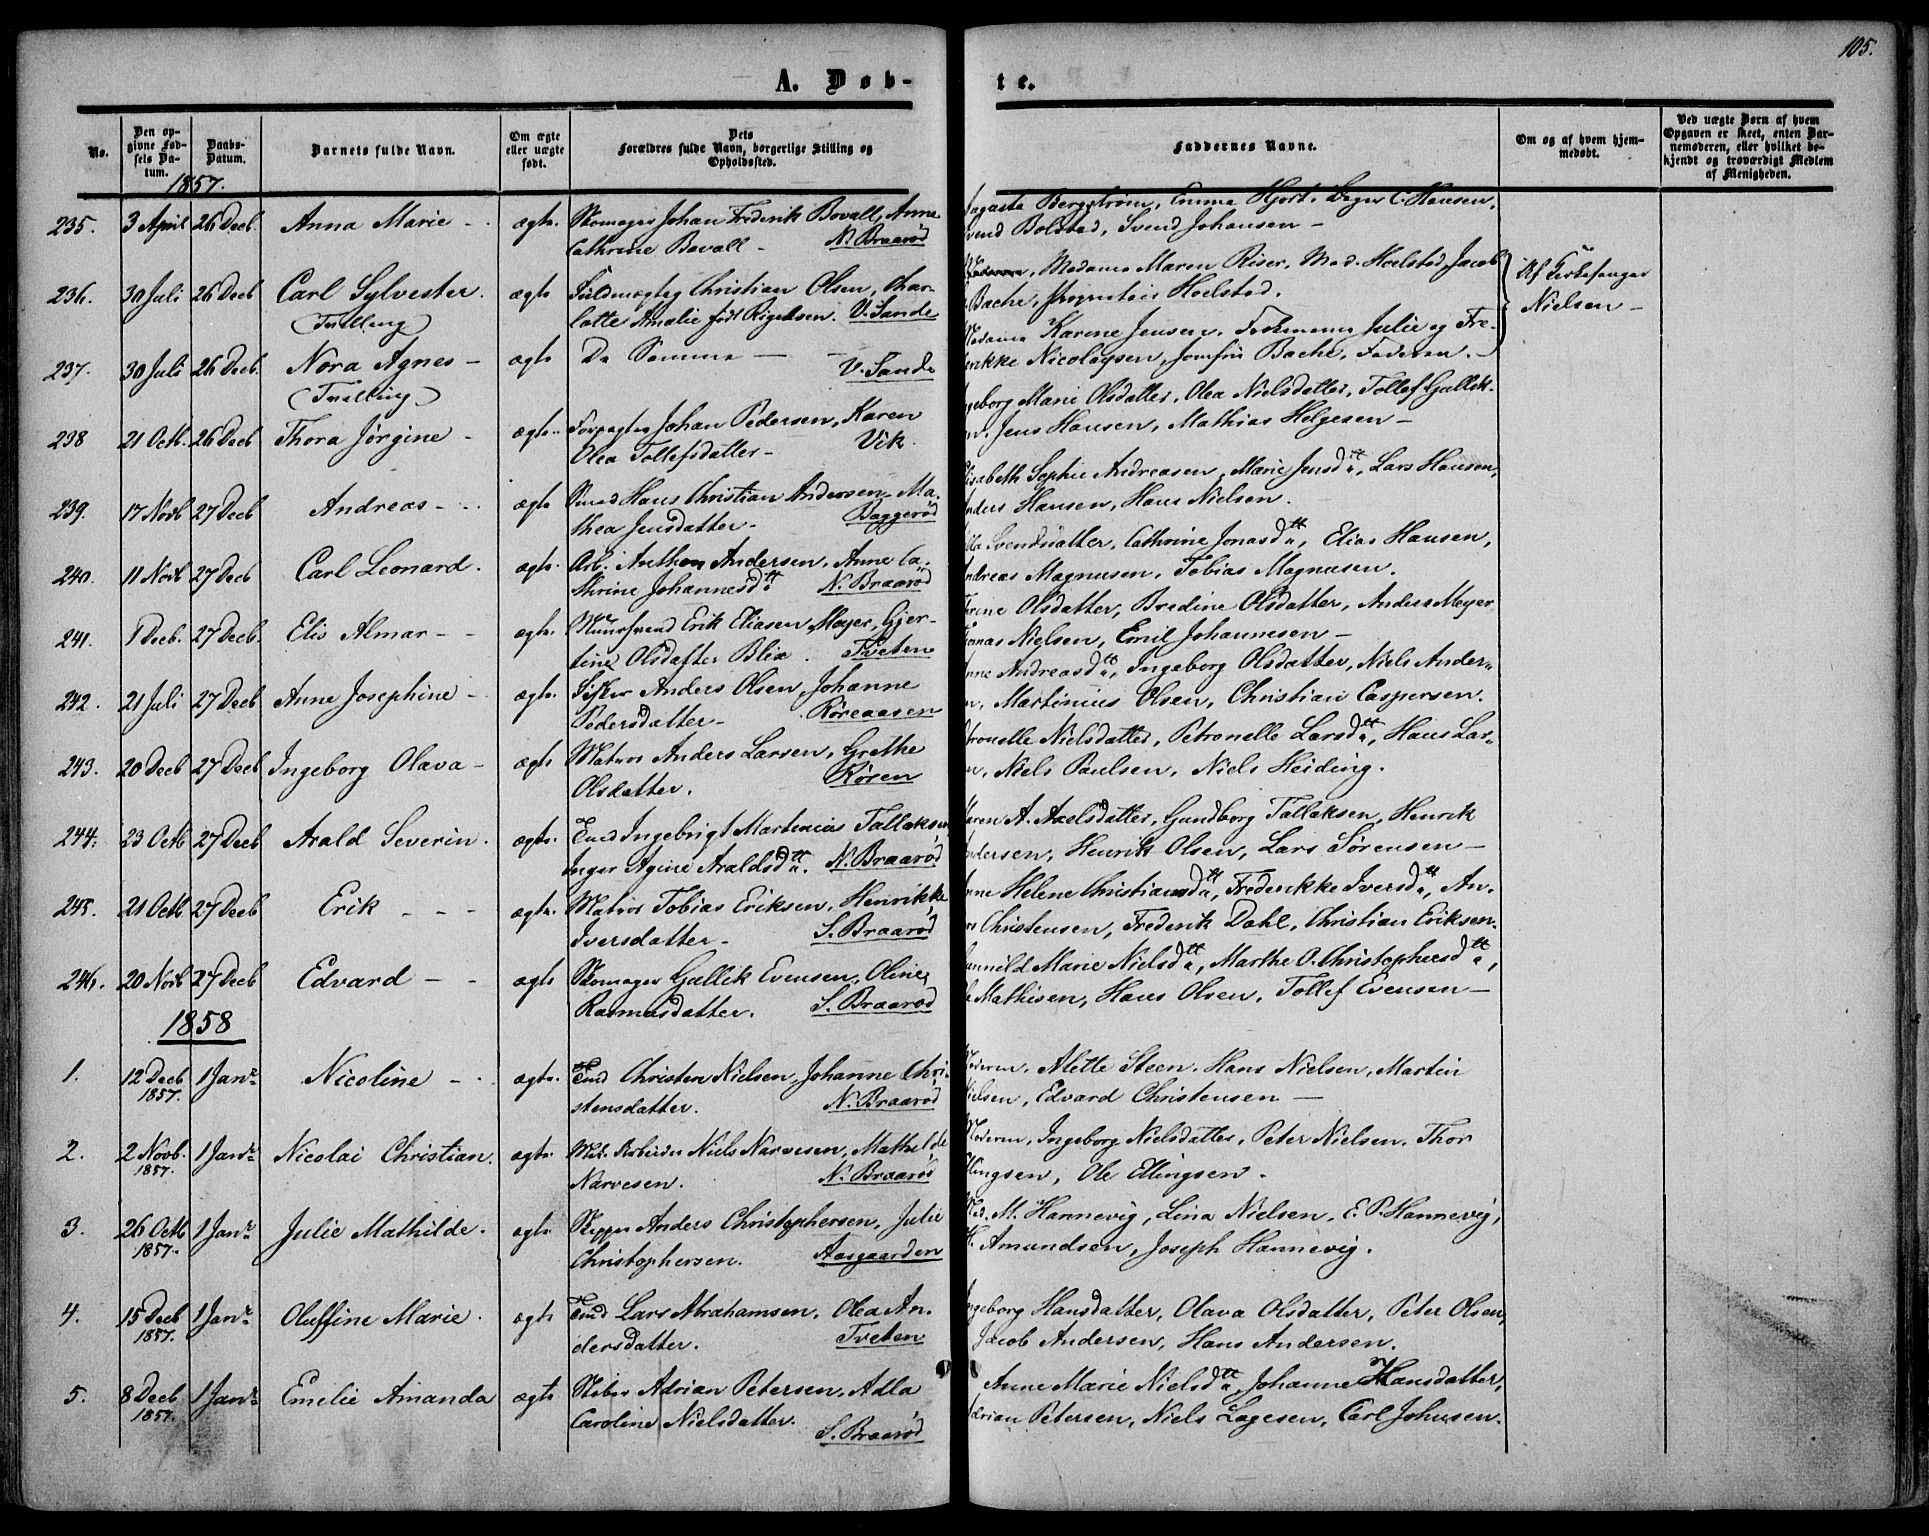 105.
A. Døb-
te.
No.
Den op-
givne Fød-
sels Da-
tum.
Daabs-
Datum.
Barnets fulde Navn.
Om ægte
eller uægte
født.
Dets
Forældres fulde Navn, borgerlige Stilling og
Opholdssted.
Faddernes Navne.
Om og af hvem hjem-
medøbt.
Ved uægte Børn af hvem
Opgaven er skeet, enten Bar-
nemoderen, eller hvilket be-
kjendt og troværdigt Medlem
af Menigheden.
1857.
235. 3 April 26 Decb. Anna Marie - ægte. Skomager Johan Frederik Bovall, Anne
Cathrine Bovall - N. Braarød
Bergstrøm, Emma Hjort, C. Hansen,
Bolstad, Svend Johansen -
236. 30 Juli 26 Decb Carl Sylvester. ægte Fuldmægtig Christian Olsen, Char-
(Tvilling) lotte Amalie født Rigelsen. V. Sande
Madame Maren Riser, Mad. Hoelstad, Jacob
Bache, Hoelstad.
Af Kirkesanger
Nielsen -
237. 30 Juli 26 Decb. Nora Agnes - ægte De Samme - V. Sande
(Tvilling)
Madame Karene Jensen, Julie og Fre-
Nicolaysen, Bache, Faderen.
238 21 Octb. 26 Decb Thora Jørgine - ægte. Forpagter Johan Pedersen, Karen
Olea Tollefsdatter - Vik.
Marie Olsdatter, Olea Nielsdatter, Tollef Gullik-
Jens Hansen, Mathias Helgesen -
239. 17 Novb 27 Decb Andreas - ægte Smed Hans Christian Andersen, Ma-
thea Jensdatter - Baggerød
Sophie Andreasen, Marie Jensdtt, Lars Hansen,
Hansen, Hans Nielsen.
240. 11 Novb 27 Decb Carl Leonard. ægte. Arb. Anthon Andersen, Anne Ca-
thrine Johannesdtt N. Braarød
Svendsdatter, Cathrine Jonasdtt, Elias Hansen,
Andreas Magnusen, Tobias Magnusen.
241. 1 Decb. 27 Decb. Elis Almar - ægte. Muursvend Erik Eliasen Meyer, Gjer-
tine Olsdatter Blix. Tveten
Olsdatter, Bredine Olsdatter, Anders Meyer,
Nielsen, Emil Johannesen -
242. 21 Juli 27 Decb Anne Josephine - ægte. Fisker Anders Olsen, Johanne
Pedersdatter - Røreaasen
Andreasdtt, Ingeborg Olsdatter, Niels Ander-
Martinius Olsen, Christian Caspersen.
243. 20 Decb 27 Decb Ingeborg Olava - ægte Matros Anders Larsen, Grethe
Olsdatter. Røren
Nielsdatter, Petronelle Larsdtt, Hans Lar-
Niels Paulsen, Niels Heiding.
244. 23 Octb 27 Decb Arald Severin. ægte. Tmd Ingebrigt Martinius Tallaksen,
Inger Agine Araldsdtt. N. Braarød
Maren A. Axelsdatter, Gundborg Tallaksen, Henrik
Andersen, Henrik Olsen, Lars Sørensen -
245. 21 Octb 27 Decb Erik - ægte. Matros Tobias Eriksen, Henrikke
Iversdatter - S. Braarød
Helene Christiansdtt, Frederikke Iversdtt, An-
Christensen, Frederik Dahl, Christian Eriksen.
246. 20 Novb 27 Decb Edvard - ægte Skomager Gullik Evensen, Oline
Rasmusdatter. S. Braarød
Marie Nielsdtt, Marthe O. Christophersdtt,
Mathisen, Hans Olsen, Tollef Evensen -
1858
1. 12 Decb 1857. 1 Janr Nicoline - ægte. Tmd Christen Nielsen, Johanne Chri-
stensdatter. N. Braarød
Alette Steen, Hans Nielsen, Martin
Nielsen, Edvard Christensen -
2. 2 Novb. 1857. 1 Janr Nicolai Christian. ægte. Niels Narvesen, Mathilde
Narvesen. N. Braarød
Ingeborg Nielsdatter, Peter Nielsen, Thor
Ellingsen, Ole Ellingsen.
3. 26 Octb 1857. 1 Janr Julie Mathilde. ægte Skipper Anders Christophersen, Julie
Christophersen. Aasgaarden
M. Hannevig, Lina Nielsen, E. P. Hannevig,
Amundsen, Joseph Hannevig.
4. 15 Decb 1857. 1 Janr Oluffine Marie. ægte Tmd Lars Abrahamsen, Olea An-
dersdatter. Tveten
Ingeborg Hansdatter, Olava Olsdatter, Peter Olsen,
Jacob Andersen, Hans Andersen.
5. 8 Decb 1857. 1 Janr Emelie Amanda ægte Reber Adrian Petersen, Adla
Caroline Nielsdatter. S. Braarød
Anne Marie Nielsdtt, Johanne Hansdatter,
Adrian Petersen, Niels Lagesen, Carl Johnsen.